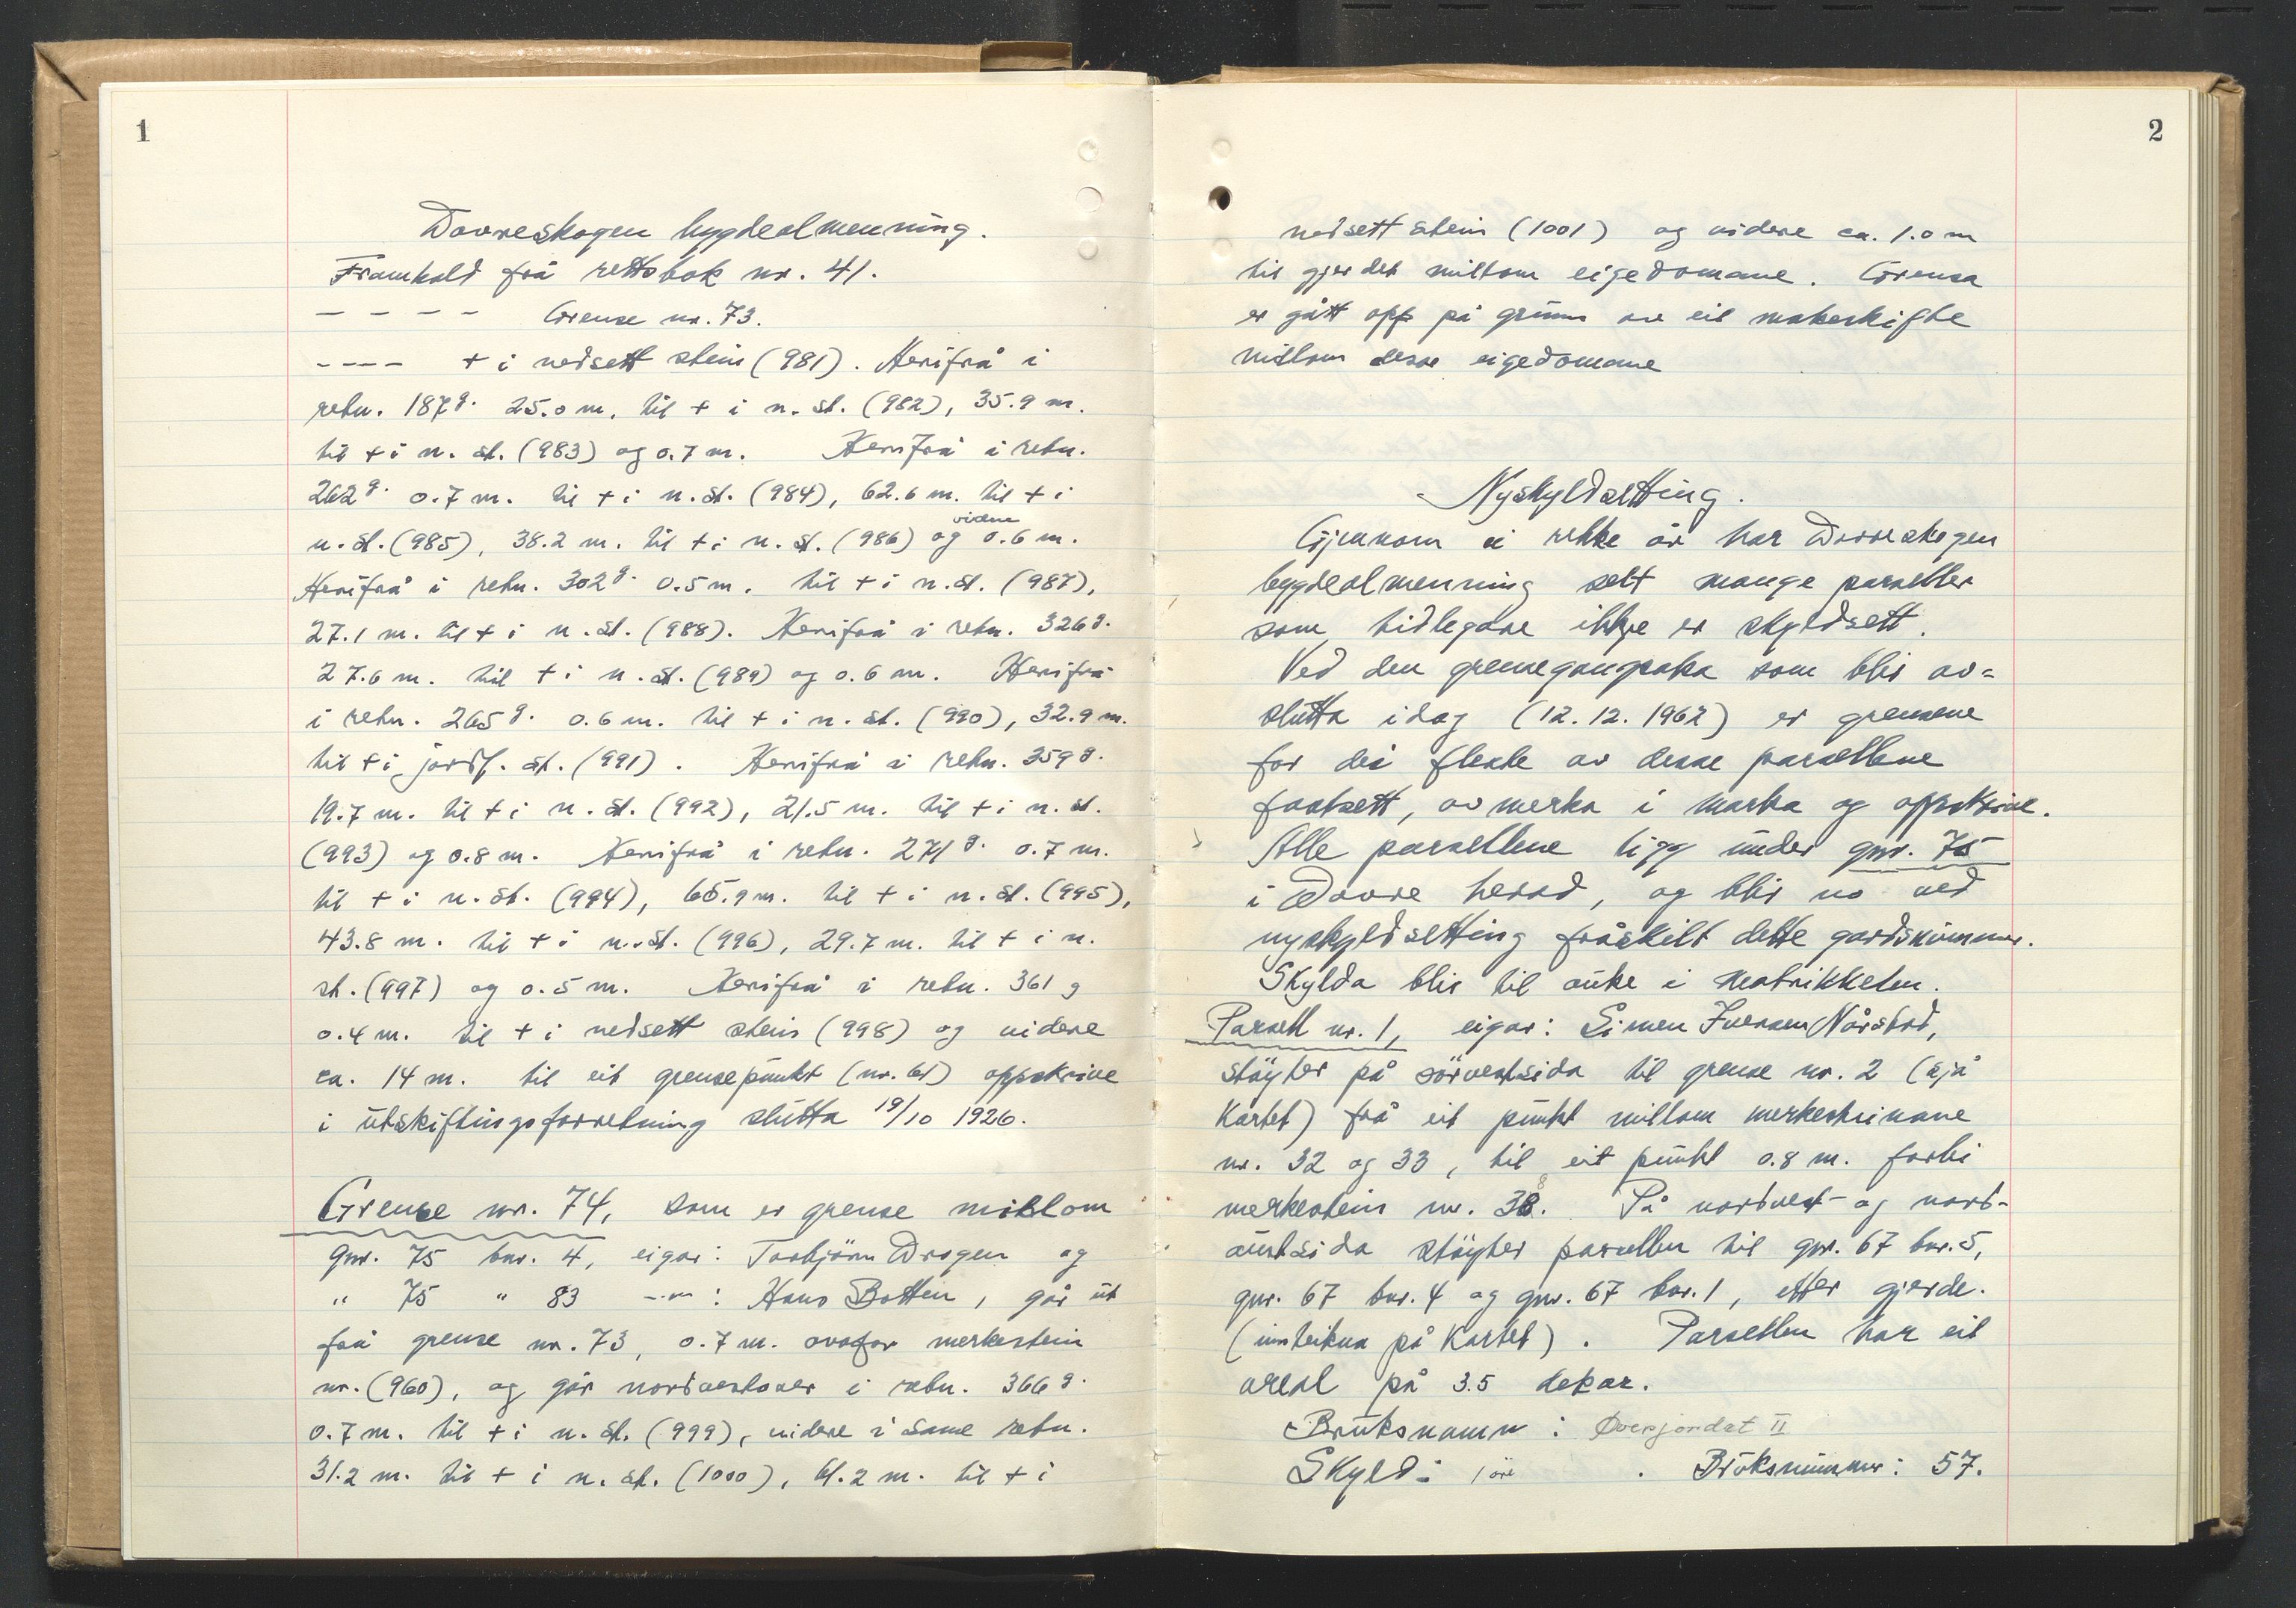 1
Dovreskogen bygdealmenning.
Framhald frå rettsbok nr. 41.
- - - - Grense nr. 73.
- - - - + i nedsett stein (981). Herifrå i
retn. 187 g. 25.0 m. til + i n. st. (982), 35.9 m.
til + i n. st. (983) og 0.7 m. Herifrå i retn.
262 g. 0.7 m. til + i n. st. (984), 62.6 m. til + i
n. st. (985), 38.2 m. til + i n. st. (986) og vidare 0.6 m.
Herifrå i retn. 302 g. 0.5 m. til + i n. st. (987),
27.1 m. til + i n. st. (988). Herifrå i retn. 326 g.
27.6 m. til + i n. st. (989) og 0.6 m. Herifrå
i retn. 265 g. 0.6 m. til + i n. st. (990), 32.9 m.
til + i jordf. st. (991). Herifrå i retn. 359 g.
19.7 m. til + i n. st. (992), 21.5 m. til + i n. st.
(993) og 0.8 m. Herifrå i retn. 271 g. 0.7 m.
til + i n. st. (994), 65.9 m. til + i n. st. (995),
43.8 m. til + i n. st. (996), 29.7 m. til + i n.
st. (997) og 0.5 m. Herifrå i retn. 361 g
0.4 m. til + i nedsett stein (998) og vidare
ca. 14 m. til eit grensepunkt (nr. 61) oppskrive
i utskiftingsforretning slutta 19/10 1926.
Grense nr. 74, som er grense millom
gnr. 75 bnr. 4, eigar: Torbjörn Drogen og
" 75 " 83 -"- : Hans Botten, går ut
frå grense nr. 73, 0.7 m. ovafor merkestein
nr. (960), og går nordvestover i retn. 366 g.
0.7 m. til + i n. st. (999), vidare i same retn.
31.2 m. til + i n. st. (1000), 61.2 m. til + i
2
nedsett stein (1001) og vidare ca. 1.0 m
til gjerdet millom eigedomane. Grensa
er gått opp på grunn av eit makeskifte
millom desse eigedomane
Nyskyldsetting.
Gjennom ei rekke år har Dovreskogen
bygdealmenning selt mange parseller
som tidlegare ikkje er skyldsett.
Ved den grensegangssaka som blir av=
slutta idag (12.12.1962) er grensene
for dei fleste av desse parsellene
fastsett, avmerka i marka og oppskrive.
Alle parsellene ligg under gnr. 75
i Dovre herad, og blir no ved
nyskyldsetting fråskilt dette gardsnummer.
Skylda blir til auke i matrikkelen.
Parsell nr. 1, eigar: Simen Iversen Nårstad,
støyter på sörvestsida til grense nr. 2 (sjå
Kartet) frå eit punkt millom merkesteinane
nr. 32 og 33, til eit punkt 0.8 m. forbi
merkestein nr. 38. På nordvest- og nord-
austsida støyter parsellen til gnr. 67 bnr. 5,
gnr. 67 bnr. 4 og gnr. 67 bnr. 1, etter gjerde.
(innteikna på Kartet). Parsellen har eit
areal på 3.5 dekar.
Bruksnamn: Øverjordet II
Skyld: 1 öre . Bruksnummer: 57.